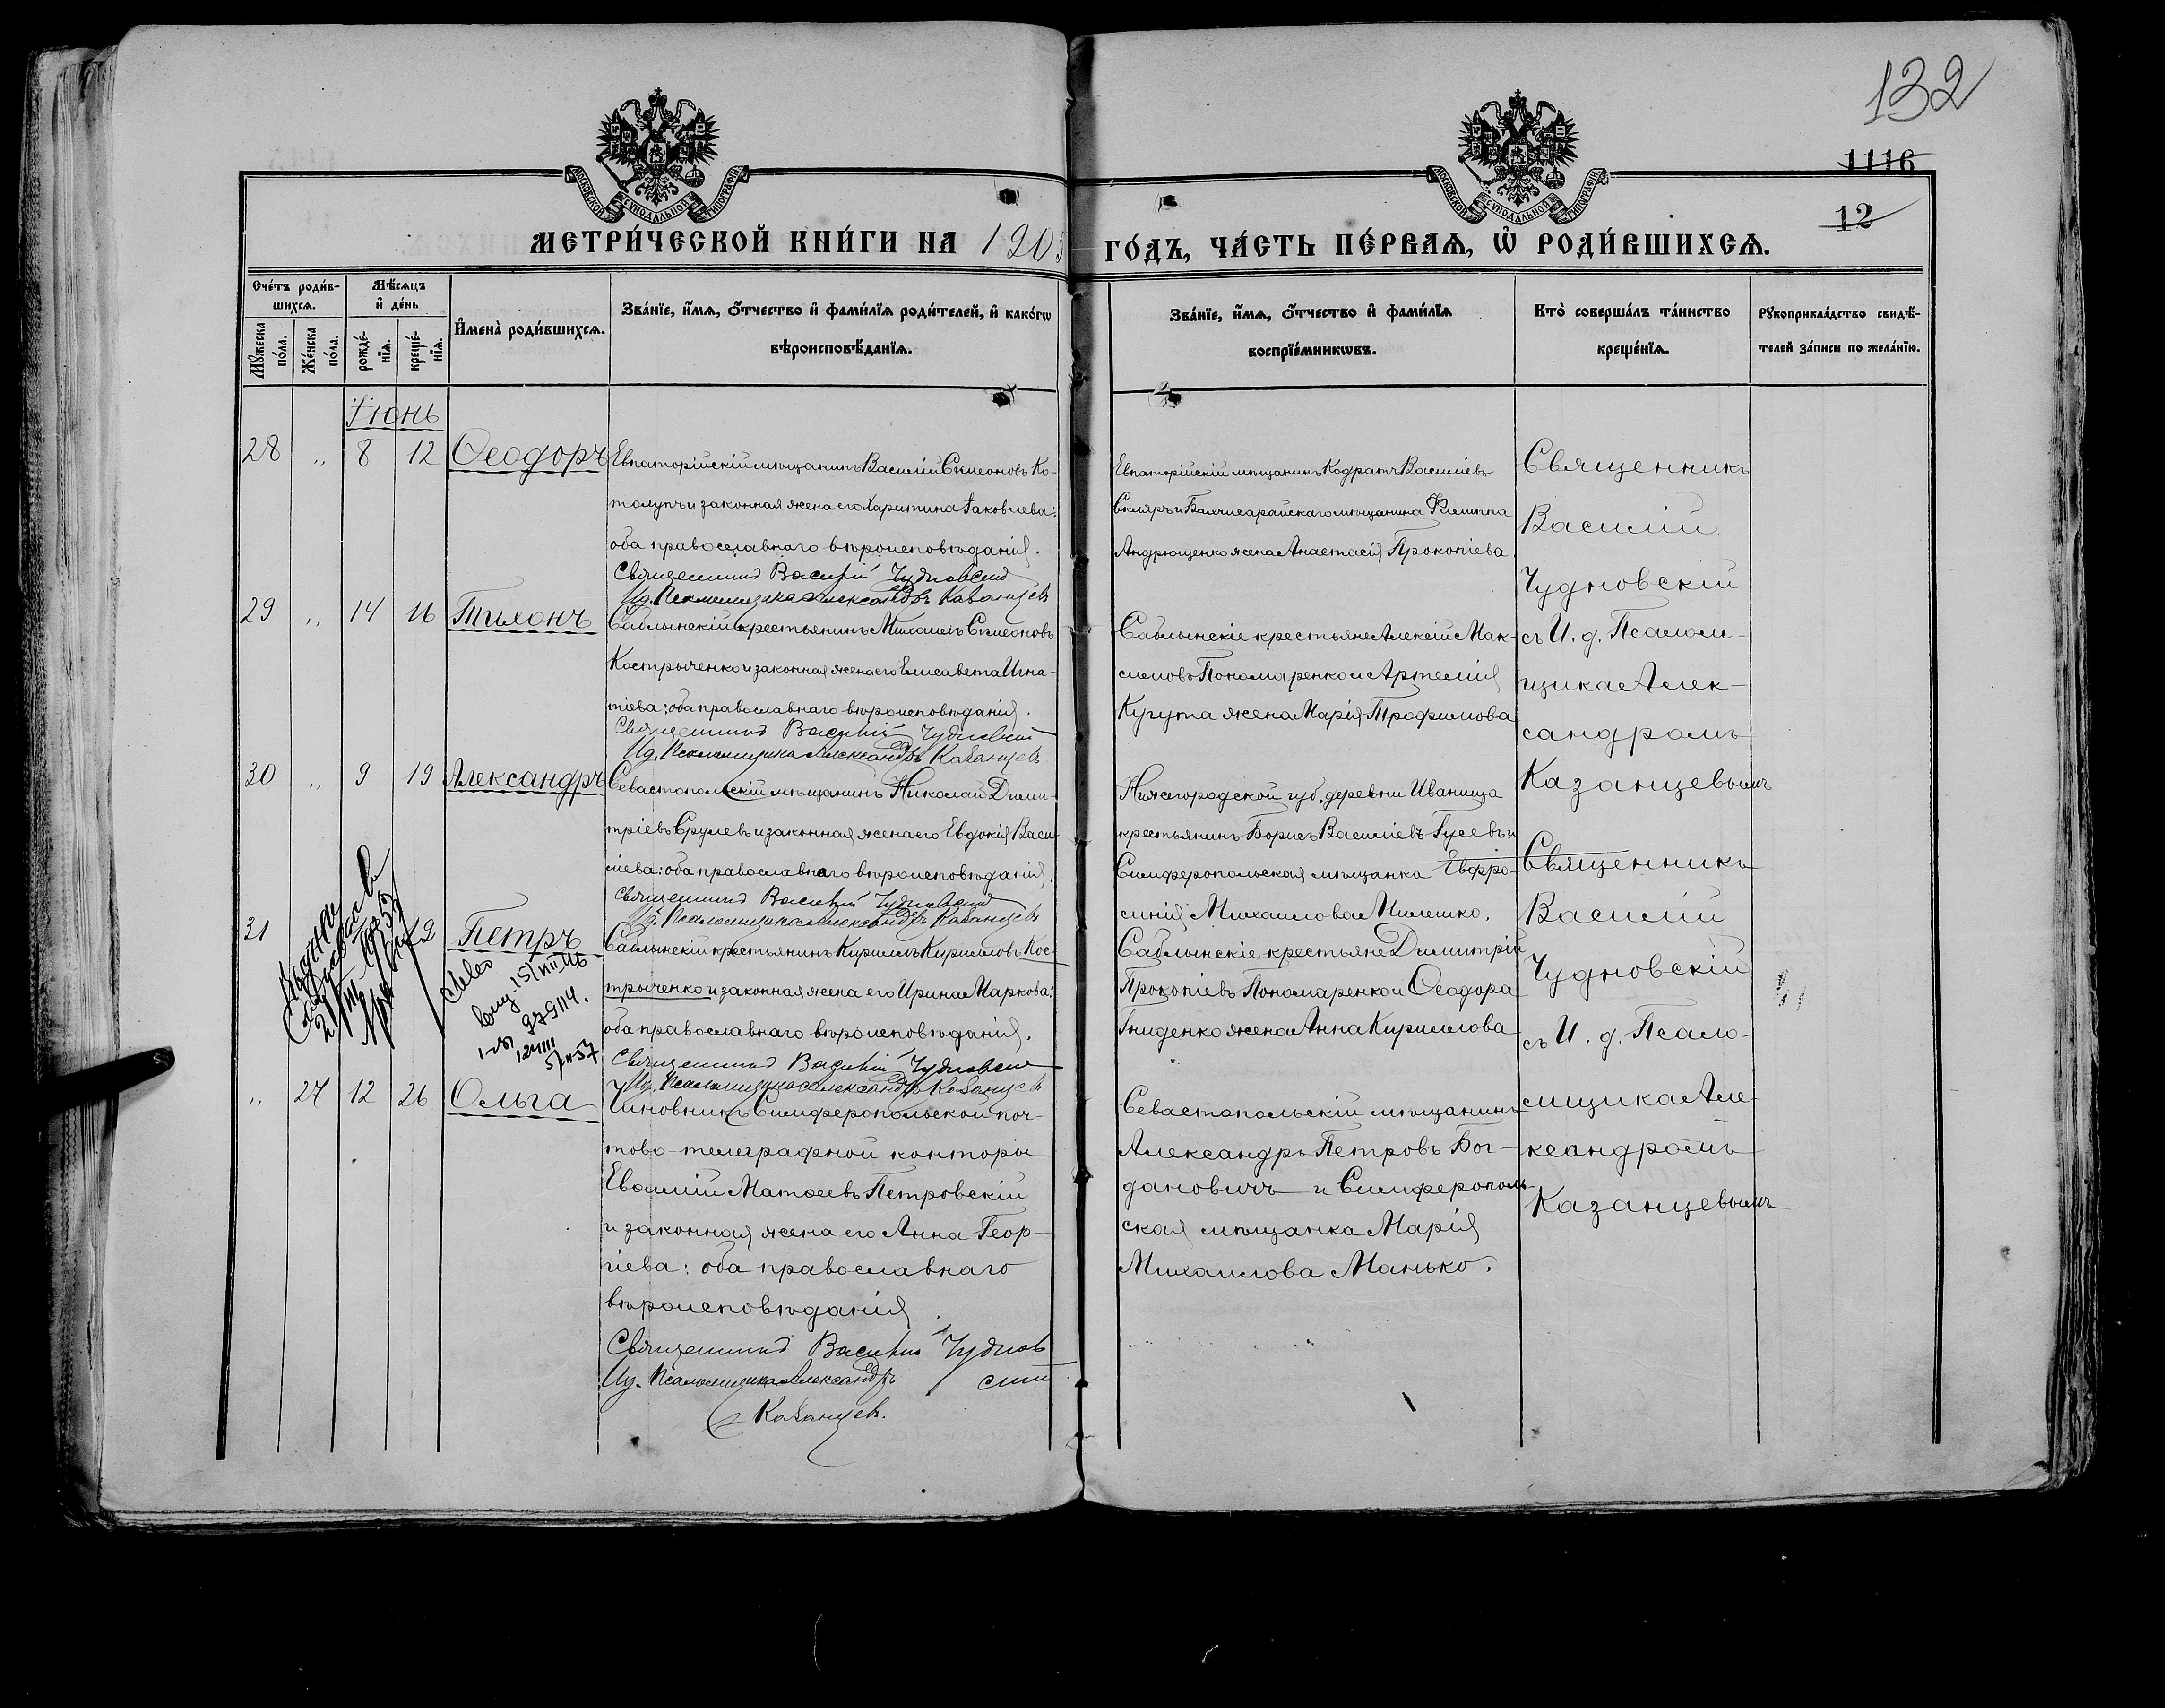 132
1116
12
МОСКОВСКОЙ СѴНОДАЛЬНОЙ ТИПОГРАФІИ
МОСКОВСКОЙ СѴНОДАЛЬНОЙ ТИПОГРАФІИ
МЕТРИ́ЧЕСКОЙ КНИ́ГИ НА 1905 ГО́ДЪ, ЧА́СТЬ ПЕ́РВАѦ, Ѿ РОДИ́ВШИХСѦ.
Сче́тъ роди́в-
шихсѧ.
Мꙋ́жеска
по́ла.
Же́нска
по́ла.
Мѣ́сѧцъ
и҆ де́нь
рожде́-
нїѧ.
креще́-
нїѧ.
И҆мена̀ роди́вшихсѧ.
Зва́нїе, и҆́мѧ, ѻ҆́тчество и҆ фами́лїѧ роди́телей, и҆ како́гѡ
вѣроисповѣ́данїѧ.
Зва́нїе, и҆́мѧ, ѻ҆́тчество и҆ фами́лїѧ
воспрїе́мникѡвъ.
Кто̀ соверша́лъ та́инство
креще́нїѧ.
Рꙋкоприкла́дство свидѣ́-
телей за́писи по жела́нїю.
Іюнь
28 „ 8 12 Ѳеодоръ
Евпаторійскій мѣщанинъ Василій Симеоновъ Ко-
толупъ и законная жена его Харитина Іаковлева:
оба православнаго вѣроисповѣданія.
Священникъ Василій Чудновскій
И.д. Псаломщика Александръ Казанцевъ
Евпаторійскій мѣщанинъ Кодратъ Василіевъ
Скляръ и Бахчисарайскаго мѣщанина Филиппа
Андрющенко жена Анастасія Прокопіева.
Священникъ
Василій
Чудновскій
съ И. д. Псалом-
щика Алек-
сандромъ
Казанцевымъ
29 „ 14 16 Тихонъ
Саблынскій крестьянинъ Михаилъ Симеоновъ
Кострыченко и законная жена его Елисавета Игна-
тіева: оба православнаго вѣроисповѣданія.
Священникъ Василій Чудновскій
И.д. Псаломщика Александръ Казанцевъ
Саблынскіе крестьяне Алексій Мак-
симовъ Пономаренко и Артемія
Кугута жена Марія Трофимова
30 „ 9 19 Александръ
Севастопольскій мѣщанинъ Николай Дими-
тріевъ Срулевъ и законная жена его Евдокія Васи-
ліева: оба православнаго вѣроисповѣданія.
Священникъ Василій Чудновскій
И.д. Псаломщика Александръ Казанцевъ
Нижегородской губ, деревни Иваница
крестьянинъ Борисъ Василіевъ Гусевъ и
Симферопольская мѣщанка Евфро-
синія Михаилова Милешко.
Священникъ
Василій
Чудновскій
съ И. д. Псало-
мщика Але-
ксандромъ
Казанцевымъ
31 Петръ
Саблынскій крестьянинъ Кириллъ Кирилловъ Кос-
трыченко и законная жена его Ирина Маркова:
оба православнаго вѣроисповѣданія.
Священникъ Василій Чудновскій
И.д. Псаломщика Александръ Казанцевъ
Саблынскіе крестьяне Димитрій
Прокопіевъ Пономаренко и Ѳеодора
Гниденко жена Анна Кириллова
979114.
„ 27 12 26 Ольга
Чиновникъ Симферопольской поч-
тово-телеграфной конторы
Евѳимій Матѳеевъ Петровскій
и законная жена его Анна Геор-
гіева: оба православнаго
вѣроисповѣданія.
Священникъ Василій Чуднов
скій
И.д. Псаломщика Александръ
Казанцевъ.
Севастопольскій мѣщанинъ
Александръ Петровъ Бог-
дановичъ и Симферополь-
ская мѣщанка Марія
Михаилова Манько.